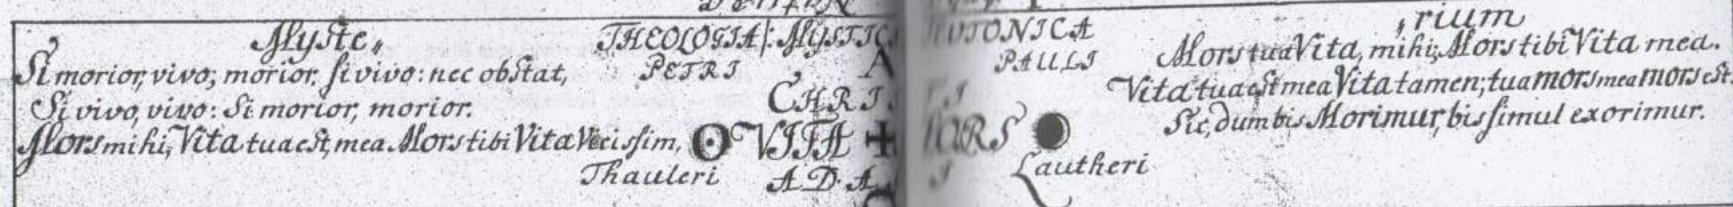 Myste,
Si morior, vivo; morior, si vivo: nec obstat,
Si vivo, vivo: Si morior, morior.
Mors mihi, Vita tua est, mea Mors tibi Vita Vicissim,
THEOLOGIA /: MYSTICA
PETRI
CHRI
VITA +
Thauleri ADA
TEUTONICA
PAULI
MORS
Lautheri
rium
Mors tua Vita, mihi; Mors tibi Vita mea.
Vita tua est mea Vita tamen; tua mors mea mors est.
Sic, dum bis Morimur, bis simul exorimur.